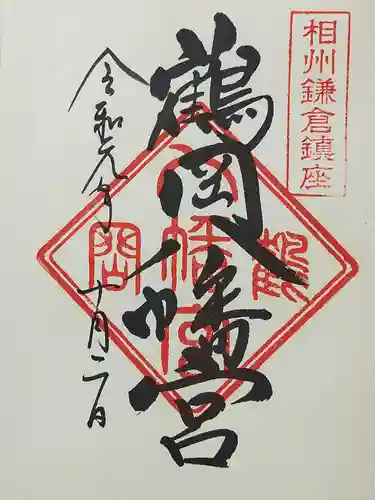 相州鎌倉鎮座
鶴岡八幡宮
鶴岡八幡宮
令和元年十月二日